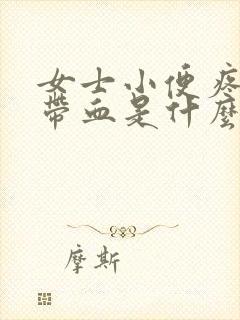 女士小便疼
带血是什麽
摩斯